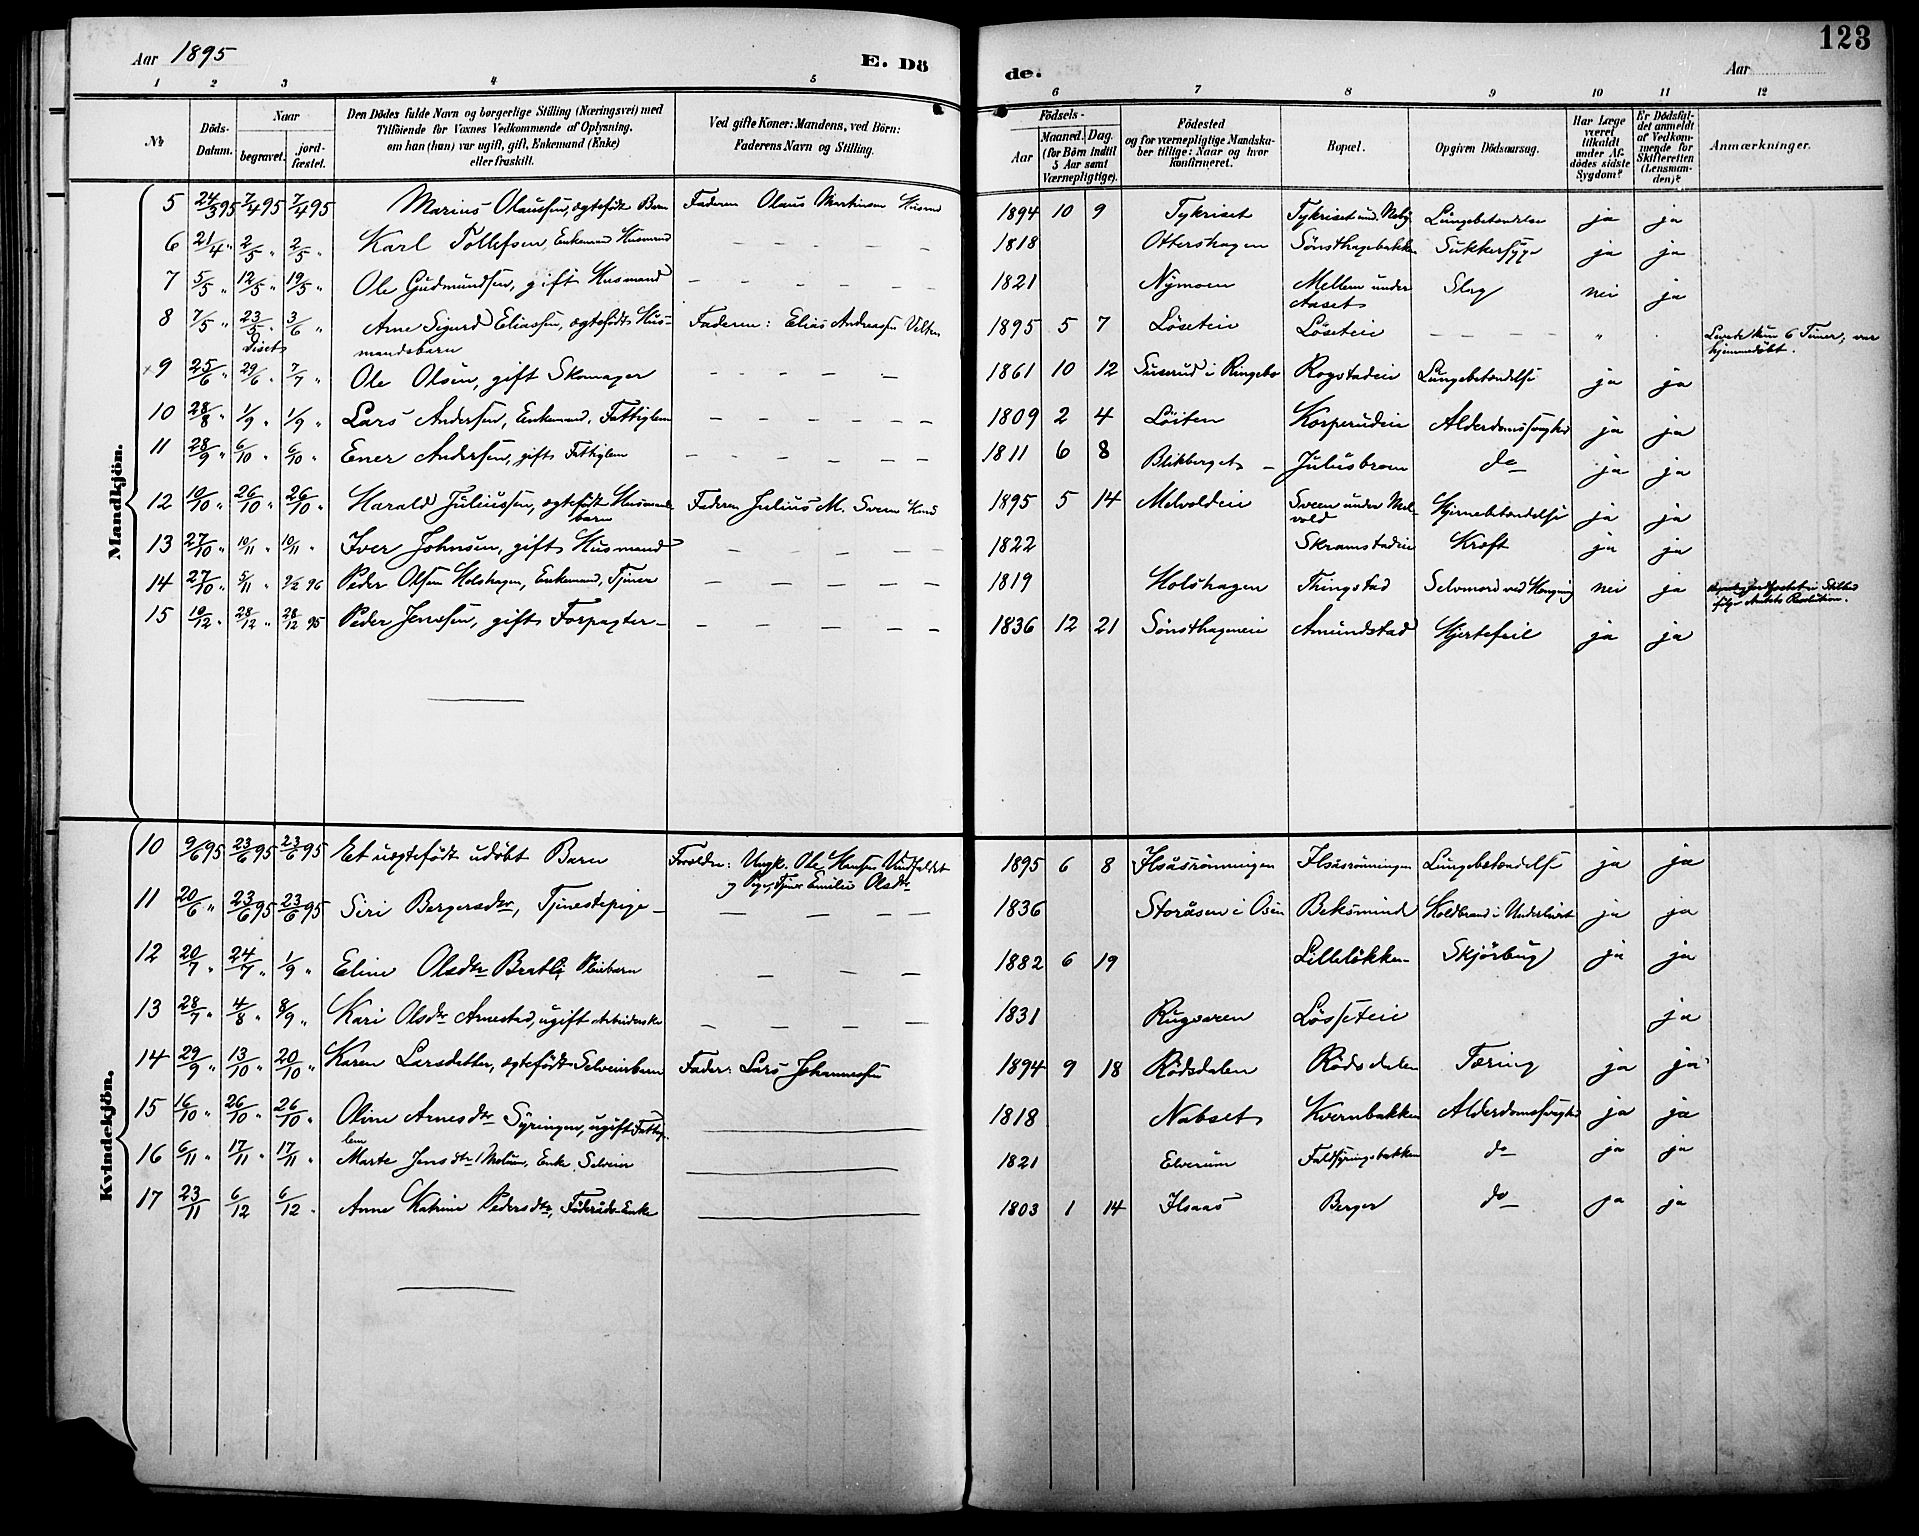 123
Aar 1895
E. Dö
de.
Aar
1 2 3 4 5 6 7 8 9 10 11 12
No.
Döds-Datum.
Naar
begravet.
jord-fæstet.
Den Dödes fulde Navn og borgerlige Stilling (Næringsvei) med
Tilföiende for Voxnes Vedkommende af Oplysning,
om han (hun) var ugift, gift, Enkemand (Enke)
eller fraskilt.
Ved gifte Koner: Mandens, ved Börn:
Faderens Navn og Stilling.
Födsels-
Aar
Maaned. Dag.
(for Börn indtil
5 Aar samt
Værnepligtige).
Födested
og for værnepligtige Mandska-
ber tillige: Naar og hvor
konfirmeret.
Bopæl.
Opgiven Dödsaarsag.
Har Læge
været
tilkaldt
under Af-
dödes sidste
Sygdom?
Er Dödsfal-
det anmeldt
af Vedkom-
mende for
Skifteretten
(Lensman-
den)?
Anmærkninger.
Mandkjön.
5 24/3 95 7/4 95 7/4 95 Marius Olaussen, ægtefödt Barn Faderen Olaus Martinsen Husmd 1894 10 9 Tykriset Tykriset und. Neby Lungebetændelse ja ja
6 21/4 " 2/5 " 2/5 " Karl Tollefsen, Enkemand Husmand – – – – – 1818 Ottershagen Sönsthagebakken Sukkersyge ja ja
7 5/5 " 12/5 " 19/5 " Ole Gudmundsen, gift Husmand – – – – – 1821 Nymoen Mellem under Aaset Slag nei ja
8 7/5 " 23/5 " 3/6 " Arne Sigurd Eliassen, ægtefödt Hus-
Diset mandsbarn Faderen: Elias Andreassen 1895 5 7 Löseteie Löseteie – – – " Levede kun 6 Timer, var
hjemmedöbt.
×9 25/6 " 29/6 " 7/7 " Ole Olsen, gift Skomager – – – – 1861 10 12 i Ringebo Rogstadeie Lungebetændelse ja ja
10 28/8 " 1/9 " 1/9 " Lars Andersen, Enkemand, Fattiglem – – – – – 1809 2 4 Löiten Korperudeie Alderdomssvaghed ja ja
11 28/9 " 6/10 " 6/10 " Ener Andersen, gift Fattiglem – – – – – – 1811 6 8 Blikberget – Juliusbroen do ja ja
12 19/10 " 26/10 " 26/10 " Harald Juliussen, ægtefödt Husmands-
barn Faderen Julius M. Sveen Husmd 1895 5 14 Melvoldeie Sveen under Mel-
vold Hjernebetændelse ja ja
13 27/10 " 10/11 " 10/11 " Iver Johnsen, gift Husmand – – – – 1822 Skramstadeie Kræft ja ja
14 27/10 " 5/11 " 2/2 96 Peder Olsen Holshagen, Enkemand, Tjener – – – – – 1819 Holshagen Thingstad Selvmord ved Hængning nei ja jordfæstet i Stilhed
ifölge Amtets Resolution.
15 19/12 " 28/12 " 28/12 95 Peder Jensen, gift Forpagter – – – – – – 1836 12 21 Sönsthageneie Amundstad Hjertefeil ja ja
Kvindekjön.
10 9/6 95 23/6 95 23/6 95 Et uægtefödt udöbt Barn Forældre: Ungk. Ole Hansen Vindfaldet
og Pige, Tjener Emilie Olsdtr 1895 6 8 Ilsåsrönningen Ilsåsrönningen Lungebetændelse ja ja
11 20/6 " 23/6 95 23/6 95 Siri Bergersdtr, Tjenestepige – – – – – 1836 Storåsen i Osen Beksminde Koldbrand i Underlivet ja ja
12 20/7 " 24/7 " 1/9 " Eline Olsdtr Bratli Pleiebarn – – – – 1882 6 19 Lillelökken Skjörbug ja ja
13 28/7 " 4/8 " 8/9 " Kari Olsdtr Arnestad, ugift Arbeiderske – – – – 1831 Rugsveen Lösseteie ja
14 29/9 " 13/10 " 20/10 " Karen Larsdatter, ægtefödt Selveierbarn Fader: Lars Johannessen 1894 9 18 Rödsdalen Rödsdalen Tæring ja ja
15 16/10 " 26/10 " 26/10 " Oline Arnesdtr Syringen, ugift Fattig-
lem 1818 Nabset Kvernbakken Alderdomssvaghed ja ja
16 6/11 " 17/11 " 17/11 " Marte Jensdtr Melum, Enke Selveier 1821 Elverum Faldsyringsbakken do ja ja
17 23/11 6/12 6/12 " Anne Katrine Pedersdtr, Föderåds-Enke 1803 1 14 Ilsaas Berger do ja ja